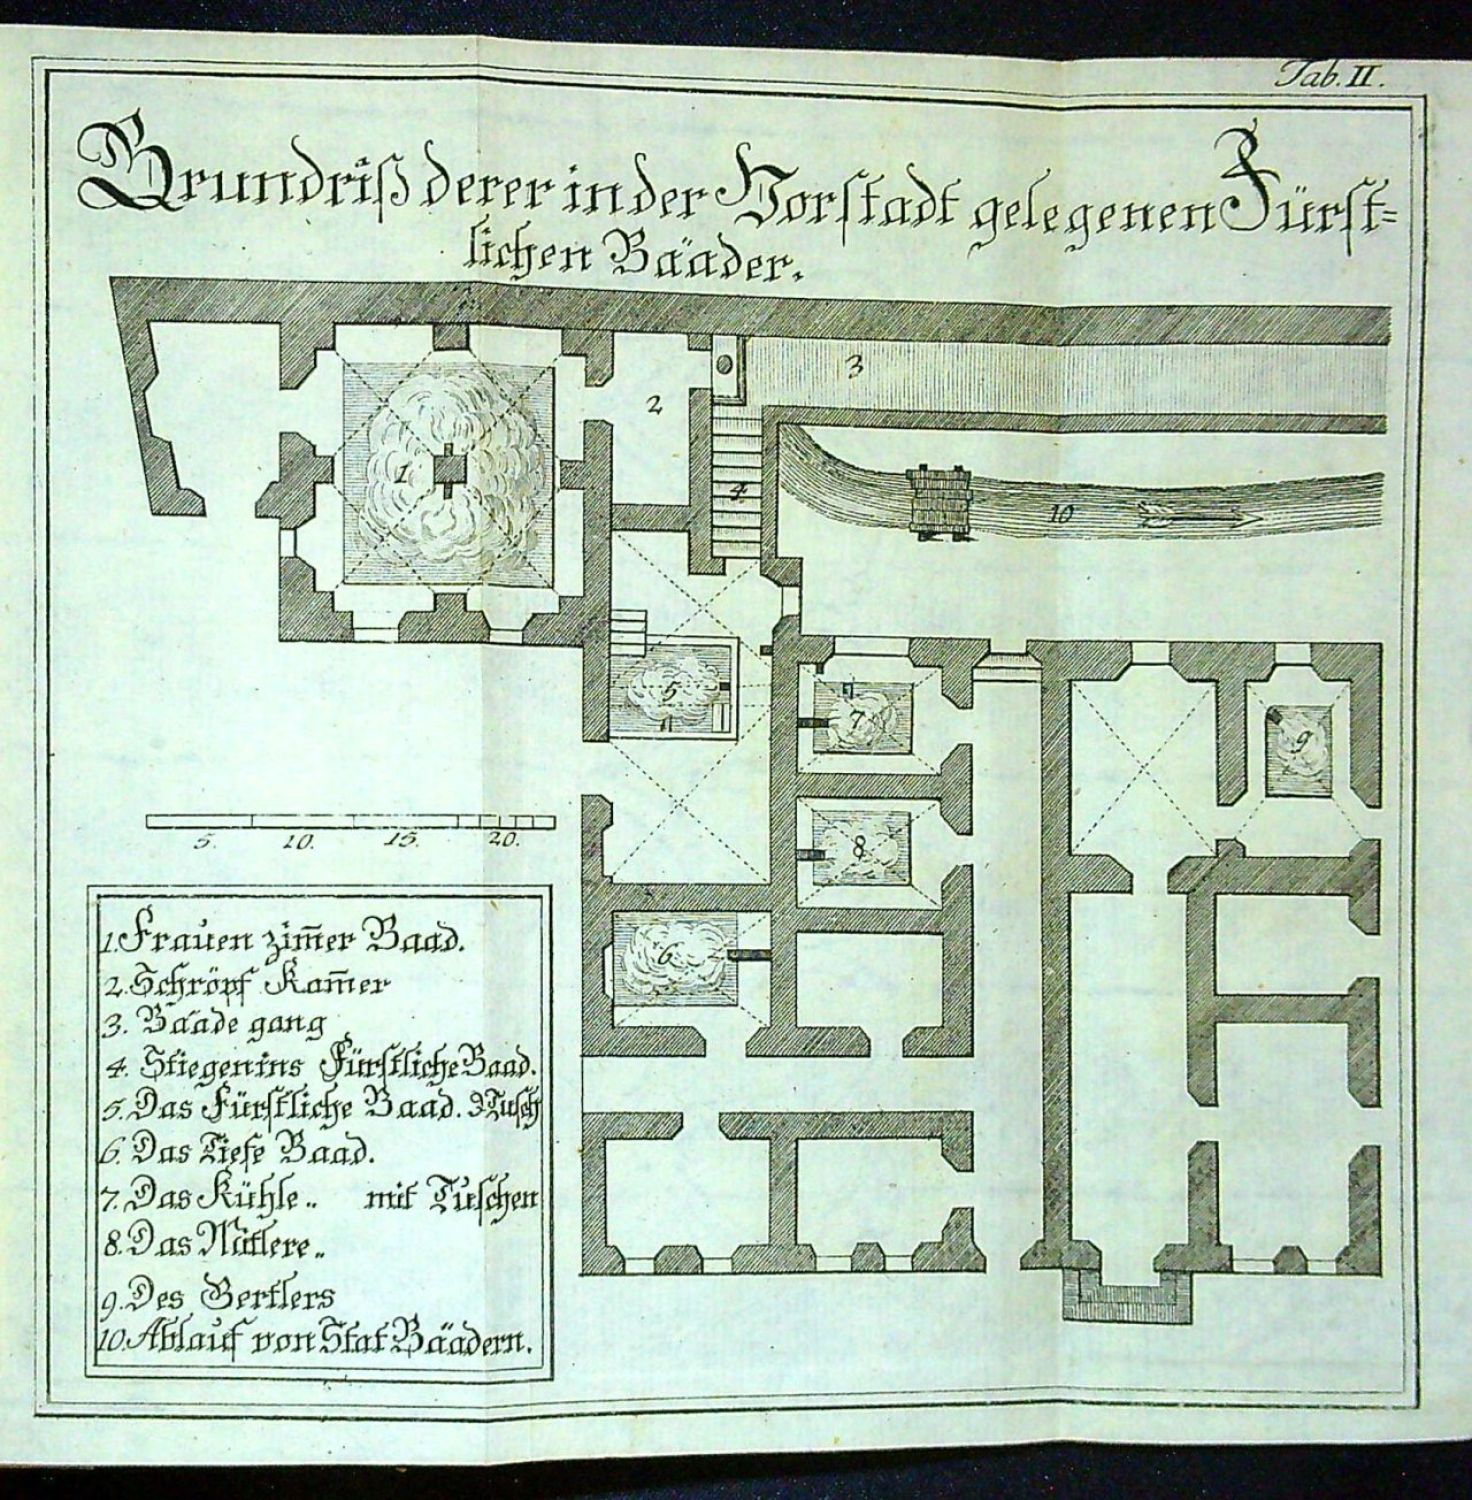 Tab. II.
Grundriß derer in der Vorstadt gelegenen Fürst=
lichen Bääder.
3
2
1
4
10
5
7
9
8
6
5. 10. 15. 20.
1. Frauen zim̅er Baad.
2. Schröpf Kam̅er
3. Bääde gang
4. Stiegen ins Fürstliche Baad.
5. Das Fürstliche Baad. Tusch
6. Das Tiefe Baad.
7. Das Kühle „ mit Tuschen
8. Das Mitlere „
9. Des Bertlers
10. Ablauf von Stat Bäädern.